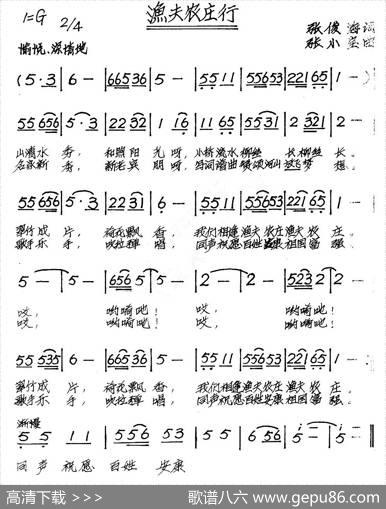 漁夫农庄行
1=G 2/4
张俊海词
张小宝曲
愉悦、深情地
(5·3 | 6 - | 66536 | 5 - | 55 11 | 55653 | 221 65 | 1 - )
55 656 | 5·3 | 22 332 | 1 16 | 11 65 | 55 653 | 2 321 | 2 - |
山清水秀, 和煦阳光呀, 小桥流水 柳丝长 柳丝长。
55 656 | 5·3 | 22 331 | 6 - | 55 11 | 55653 | 221 65 | 1 - |
翠竹成片, 荷花飘香, 我们相逢渔夫农庄渔夫农庄。
歌手乐手, 吹拉弹唱, 同声祝愿百姓安康祖国富强。
5 - | 5 - | 656 5 | 5 - | 2 - | 2 - | 523 2 | 2 -
哎, 哟嗬吔! 哎, 哟嗬吔!
哎, 哟嗬吔! 哎, 哟嗬吔!
55 535 | 6 - | 66536 | 5 - | 55 11 | 55653 | 221 65 | 1 - |
翠竹成片, 荷花飘香, 我们相逢渔夫农庄渔夫农庄。
歌手乐手, 吹拉弹唱, 同声祝愿百姓安康祖国富强。
渐慢
5 5 | 1 1 | 5 5 6 | 5 3 | 5 5 | 6 56 | i - | i - )
同声祝愿 百姓 安康
高清下载 >>>
歌谱八六 www.gepu86.com